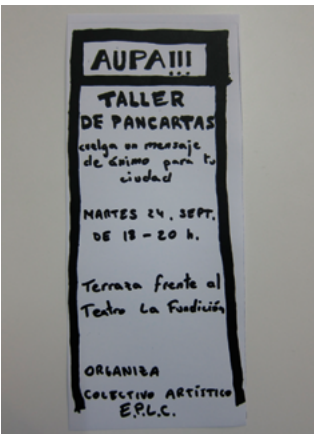 AUPA!!!
TALLER
DE PANCARTAS
cuelga un mensaje
de ánimo para tu
ciudad
MARTES 24, SEPT.
DE 18 - 20 h.
Terraza frente al
Teatro La Fundición
ORGANIZA
COLECTIVO ARTÍSTICO
E.P.L.C.